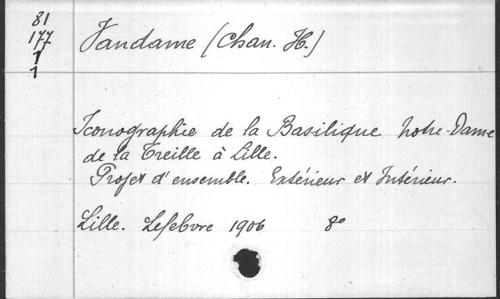 81
177
1
1
Vandame (Chan. H.)
Iconographie de la Basilique Notre-Dame
de la Treille à Lille.
Projet d'ensemble. Extérieur et Intérieur.
Lille. Lefebvre 1906 8°